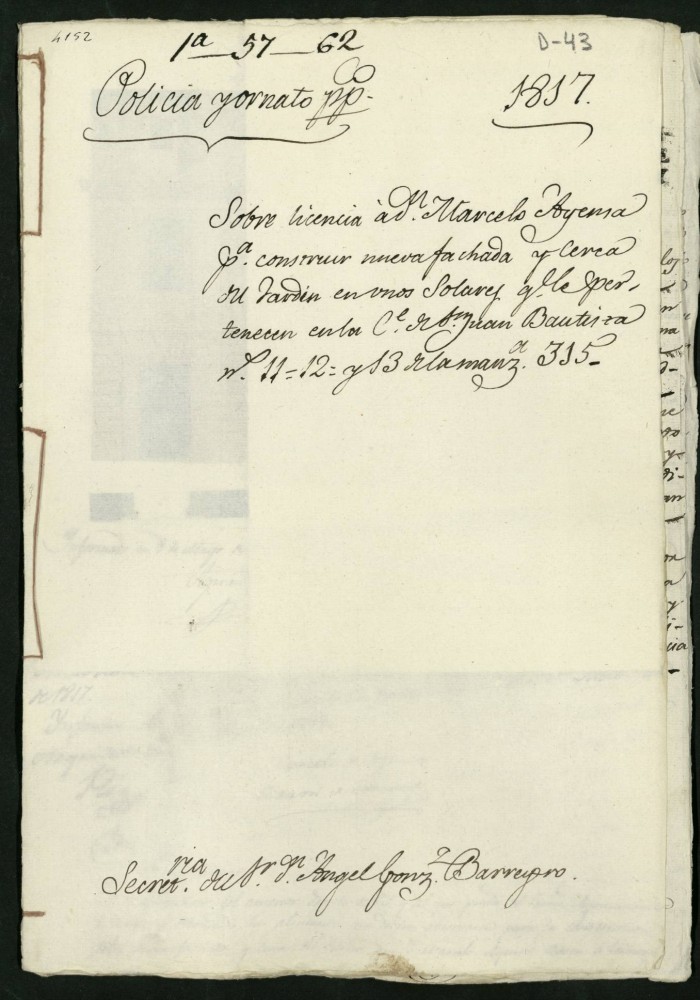 4152
1ª 57 62
D-43
Policia y ornato pp.
1817.
Sobre licencia à dn. Marcelo Ayensa
pª. construir nueva fachada y Cerca
del Jardin en unos Solares qe. le per-
tenecen en la Ce. de Sn. Juan Bautista
no. 11=12=y 13 de la manzª. 315-
Secretria. del Sr. Dn. Angel Gonzz. Barreyro.